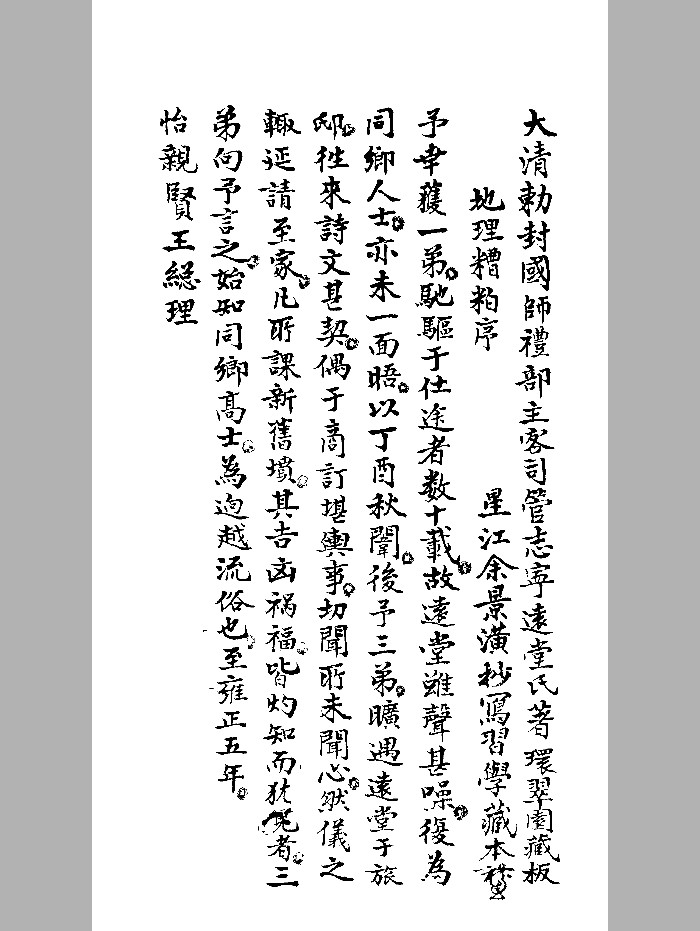 大清勅封國師禮部主客司管志寧遠堂氏著環翠園藏板
地理糟粕序
星江余景潢抄寫習學藏本
予幸獲一第馳驅于仕途者数十載故遠堂雖聲甚噪復為
同鄉人士亦未一面晤以丁酉秋闈後予三弟曠遇遠堂于旅
邸徃來詩文甚契偶于商訂堪輿事切聞所未聞心然儀之
輙延請至家凡所課新舊墳其吉凶祸福皆灼知而犹者三
弟向予言之始知同鄉髙士為迥越流俗也至雍正五年
怡親賢王総理